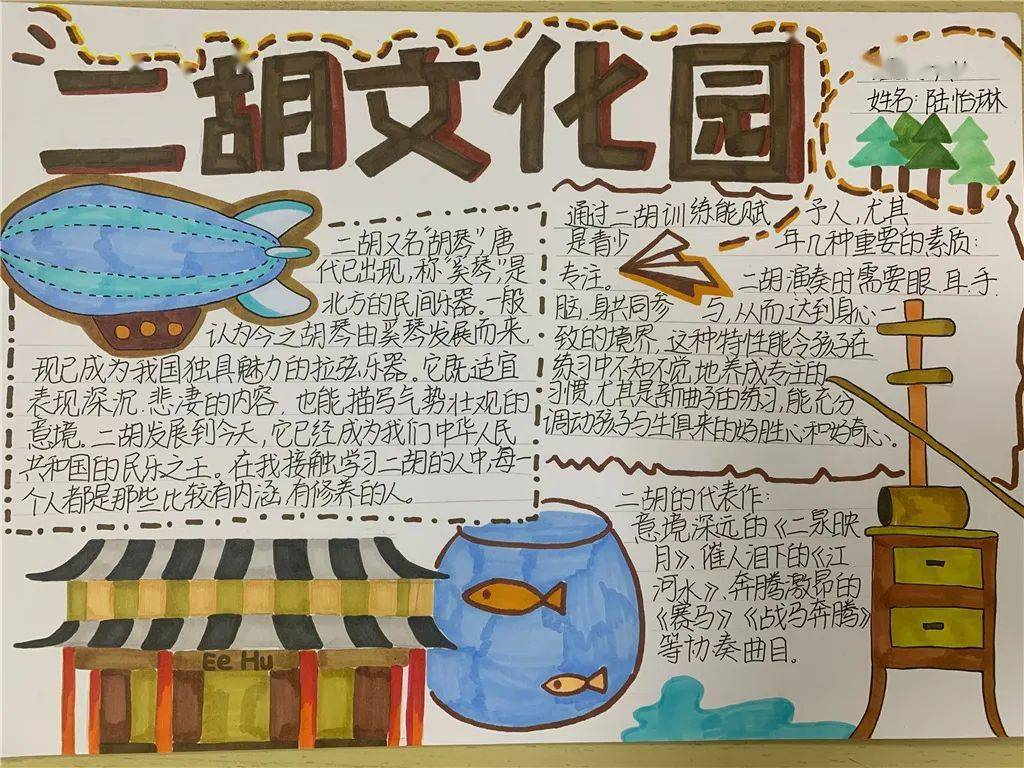 二胡文化园
姓名:陆怡琳
二胡又名"胡琴",唐
代已出现,称"奚琴",是
北方的民间乐器。一般
认为今之胡琴由奚琴发展而来,
现已成为我国独具魅力的拉弦乐器。它既适宜
表现深沉、悲凄的内容,也能描写气势壮观的
意境。二胡发展到今天,它已经成为我们中华人民
共和国的民乐之王。在我接触学习二胡的人中,每一
个人都是那些比较有内涵,有修养的人。
通过二胡训练能赋予人,尤其
是青少年几种重要的素质:
专注。二胡演奏时需要眼、耳、手、
脑、身共同参与,从而达到身心一
致的境界,这种特性能令孩子在
练习中不知不觉地养成专注的
习惯,尤其是新曲子的练习,能充分
调动孩子与生俱来的好胜心和好奇心。
二胡的代表作:
意境深远的《二泉映
月》、催人泪下的《江
河水》、奔腾激昂的
《赛马》《战马奔腾》
等协奏曲目。
Ee Hu